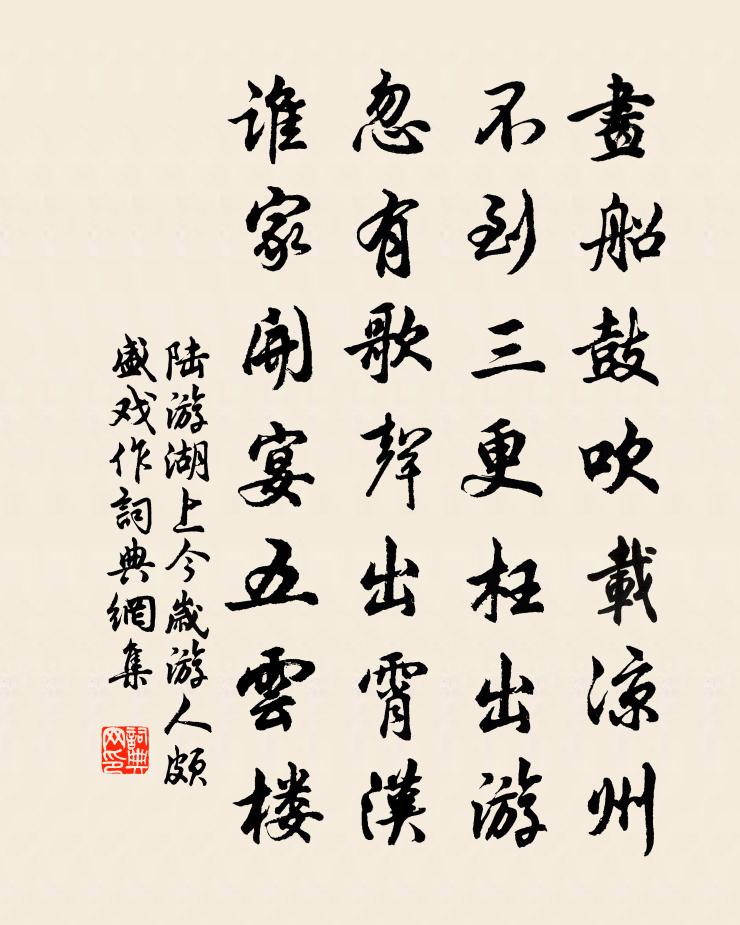 畫船鼓吹載涼州
不到三更枉出游
忽有歌聲出霄漢
谁家開宴五雲楼
陆游湖上今歲游人頗
盛戏作詞典網集
詞典
网印